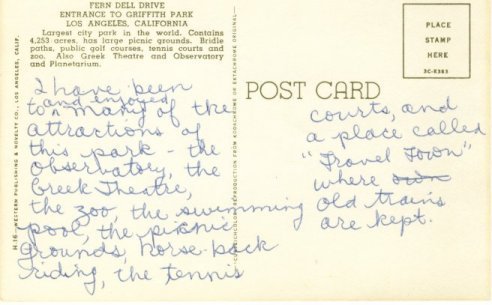 FERN DELL DRIVE
ENTRANCE TO GRIFFITH PARK
LOS ANGELES, CALIFORNIA
Largest city park in the world. Contains
4,253 acres, has large picnic grounds. Bridle
paths, public golf courses, tennis courts and
zoo. Also Greek Theatre and Observatory
and Planetarium.
PLACE
STAMP
HERE
POST CARD
I have been
and enjoyed
to ^ many of the
attractions of
this park - the
Observatory, the
Greek Theatre,
the zoo, the swimming
pool, the picnic
grounds, horse-back
riding, the tennis
courts, and
a place called
"Travel Town"
where
old trains
are kept.